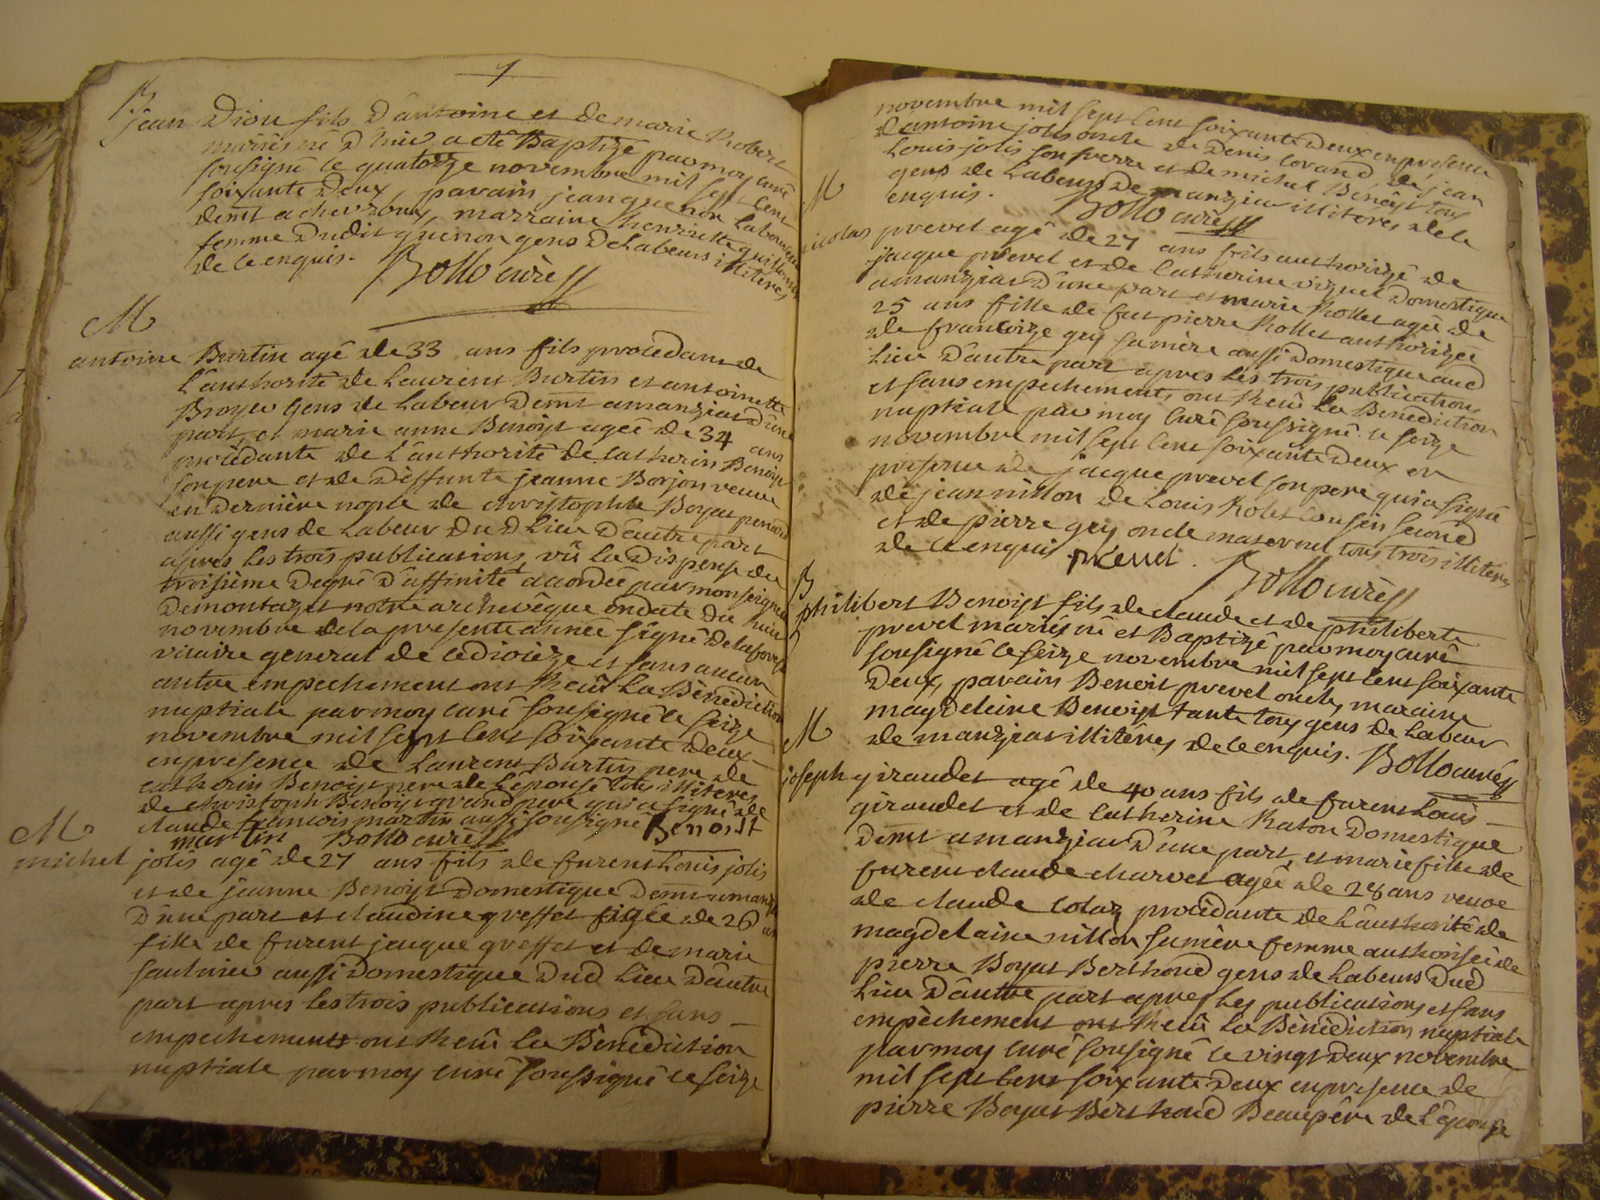 B
jean Diou fils D'antoine et de marie Robert
mariés né D'hier a eté Baptizé par moy curé
soussigné le quatorze novembre mil sept cent
soixante Deux, parain jean guenon Laboureur
demt a chevroux, marraine henriette
femme Dudit guenon gens De Labeurs illiteres
de ce enquis. Bollo curé
M
antoine Burtin agé de 33 ans fils procedant de
L'authorité de Laurent Burtin et antoinette
Broyer gens de Labeur Demt a manziat D'une
part, et marie anne Benoist agée de 34 ans
procedante de L'authorité de catherin Benoist
son pere et de Deffunte jeanne Borjon veuve
en Derniere nopce de christophle Boyat
aussi gens de Labeur Dud Lieu D'autre part
apres les trois publications, vu La Dispense du
troisieme Degré D'affinité accordée par monseigneur
Demontazet notre archevêque en date du huit
novembre de la presente année signé Delaforest
vicaire general de ce Dioceze et sans aucun
autre empechement ont Receu La Bénédiction
nuptiale par moy curé soussigné le seize
novembre mil sept cent soixante Deux
en presence de Laurent Burtin pere de
catherin Benoist pere de L'épouse tous illiteres
de christoph Benoist grand pere qui a signé de
claude francois martin aussi soussigné Benoist
martin Bollo curé
M
michel jolis agé de 27 ans fils de furent Louis jolis
et de jeanne Benoist Domestique Demt a manziat
D'une part et claudine greffet agée de 26 ans
fille de furent jacque greffet et de marie
saulnier aussi Domestique Dud Lieu D'autre
part apres les trois publications et sans
empechements ont Receu La Bénédiction
nuptiale par moy curé soussigné le seize
novembre mil sept cent soixante Deux en presence
de antoine jolis oncle de Denis corand de jean
Louis jolis son frere et de michel Bénoist tous
gens de Labeurs De manziat illiteres de ce
enquis. Bollo curé
M
nicolas prevel agé de 27 ans fils authorizé de
jacque prevel et de catherine viguet Domestique
a manziat D'une part et marie Rollet agée de
25 ans fille de fut pierre Rollet authorizée
de francoize grey sa mère aussi Domestique aud
Lieu D'autre part apres Les trois publications
et sans empechements ont Receu La Bénédiction
nuptiale par moy curé soussigné le seize
novembre mil sept cent soixante Deux en
presence de jacque prevel son pere qui a signé
de jean nillon de Louis Rolet cousin second
et de pierre grey oncle maternel tous trois illiteres
de ce enquis prevel. Bollo curé
B
philibert Benoist fils de claude et de philiberte
prevel mariés né et Baptizé par moy curé
soussigné le seize novembre mil sept cent soixante
Deux, parain Benoit prevel oncle, maraine
magdeleine Benoist tante tous gens de Labeur
de manziat illiteres de ce enquis. Bollo curé
M
joseph giraudet agé de 40 ans fils de furent Louis
giraudet et de catherine Raton Domestique
Demt a manziat D'une part, et marie fille de
furent claude charvet agée de 28 ans veuve
de claude colas procédante de L'authorité de
magdelaine nillon sa mère femme authorisée de
pierre Boyat Berthoud gens de Labeurs Dud
Lieu D'autre part apres Les publications et sans
empêchement ont Receu La Bénédiction nuptiale
par moy curé soussigné le vingt deux novembre
mil sept cent soixante Deux en presence de
pierre Boyat Berthoud Beaupère de L'épouse